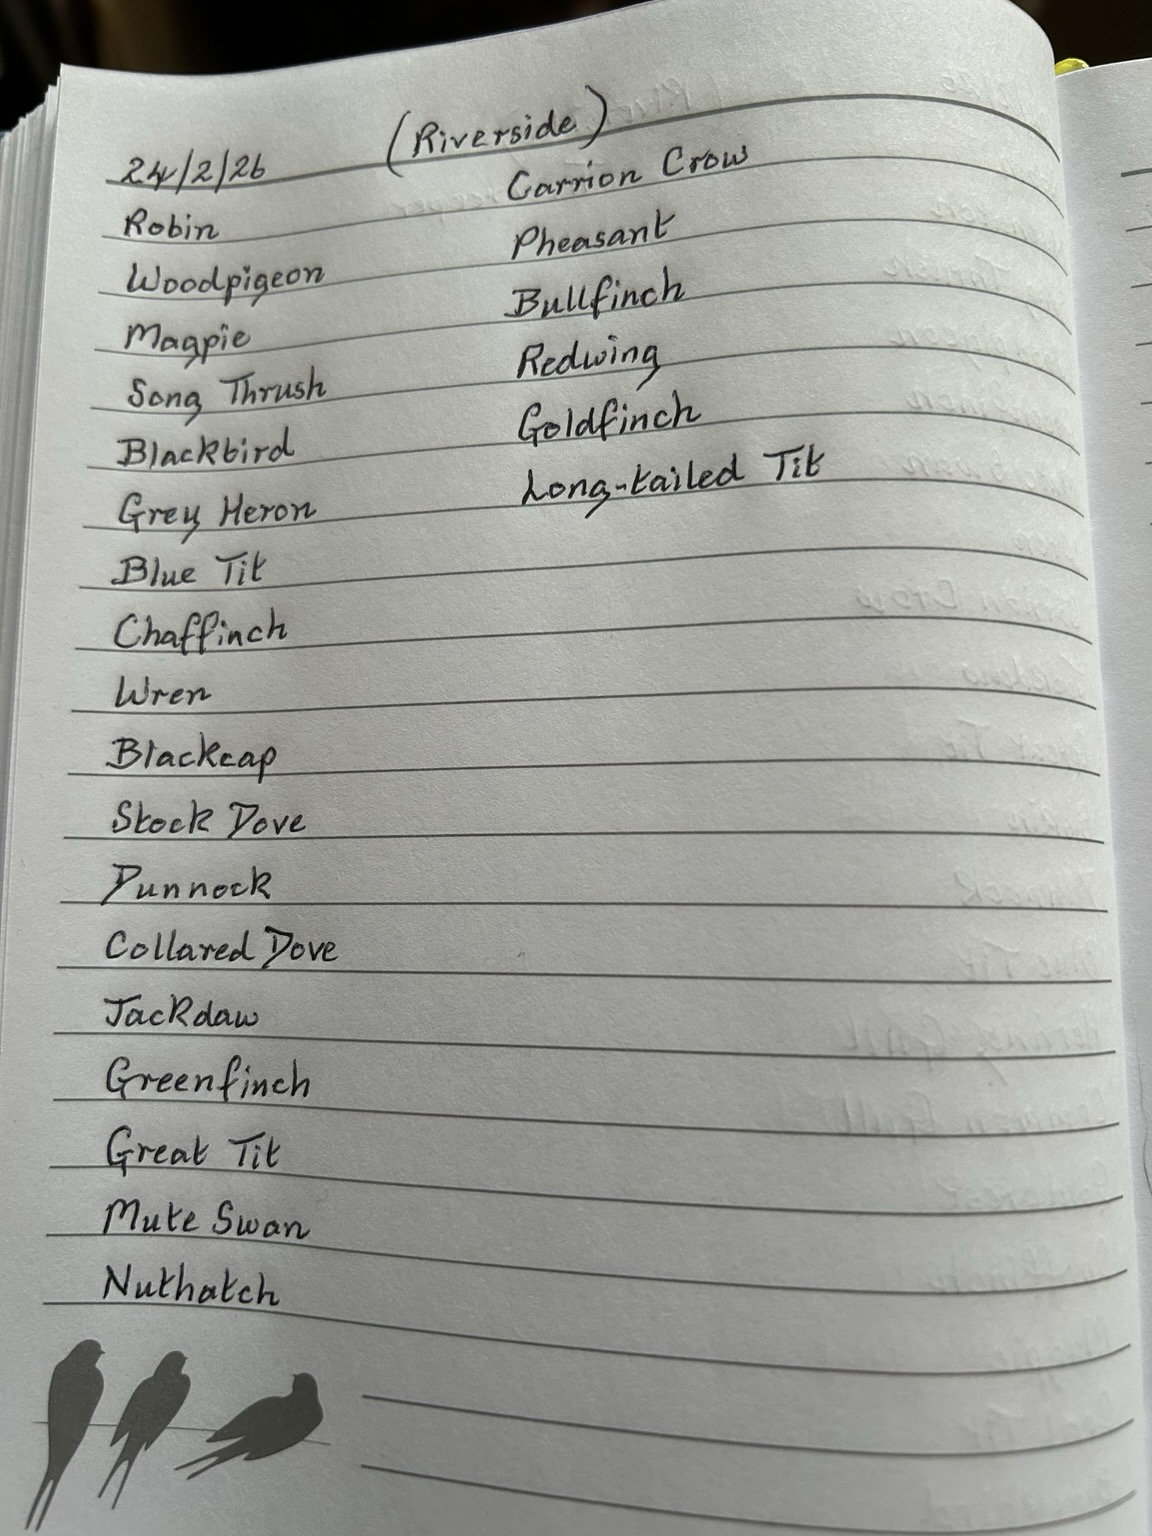 (Riverside)
24/2/26
Robin
Woodpigeon
Magpie
Song Thrush
Blackbird
Grey Heron
Blue Tit
Chaffinch
Wren
Blackcap
Stock Dove
Dunnock
Collared Dove
Jackdaw
Greenfinch
Great Tit
Mute Swan
Nuthatch
Carrion Crow
Pheasant
Bullfinch
Redwing
Goldfinch
Long-tailed Tit